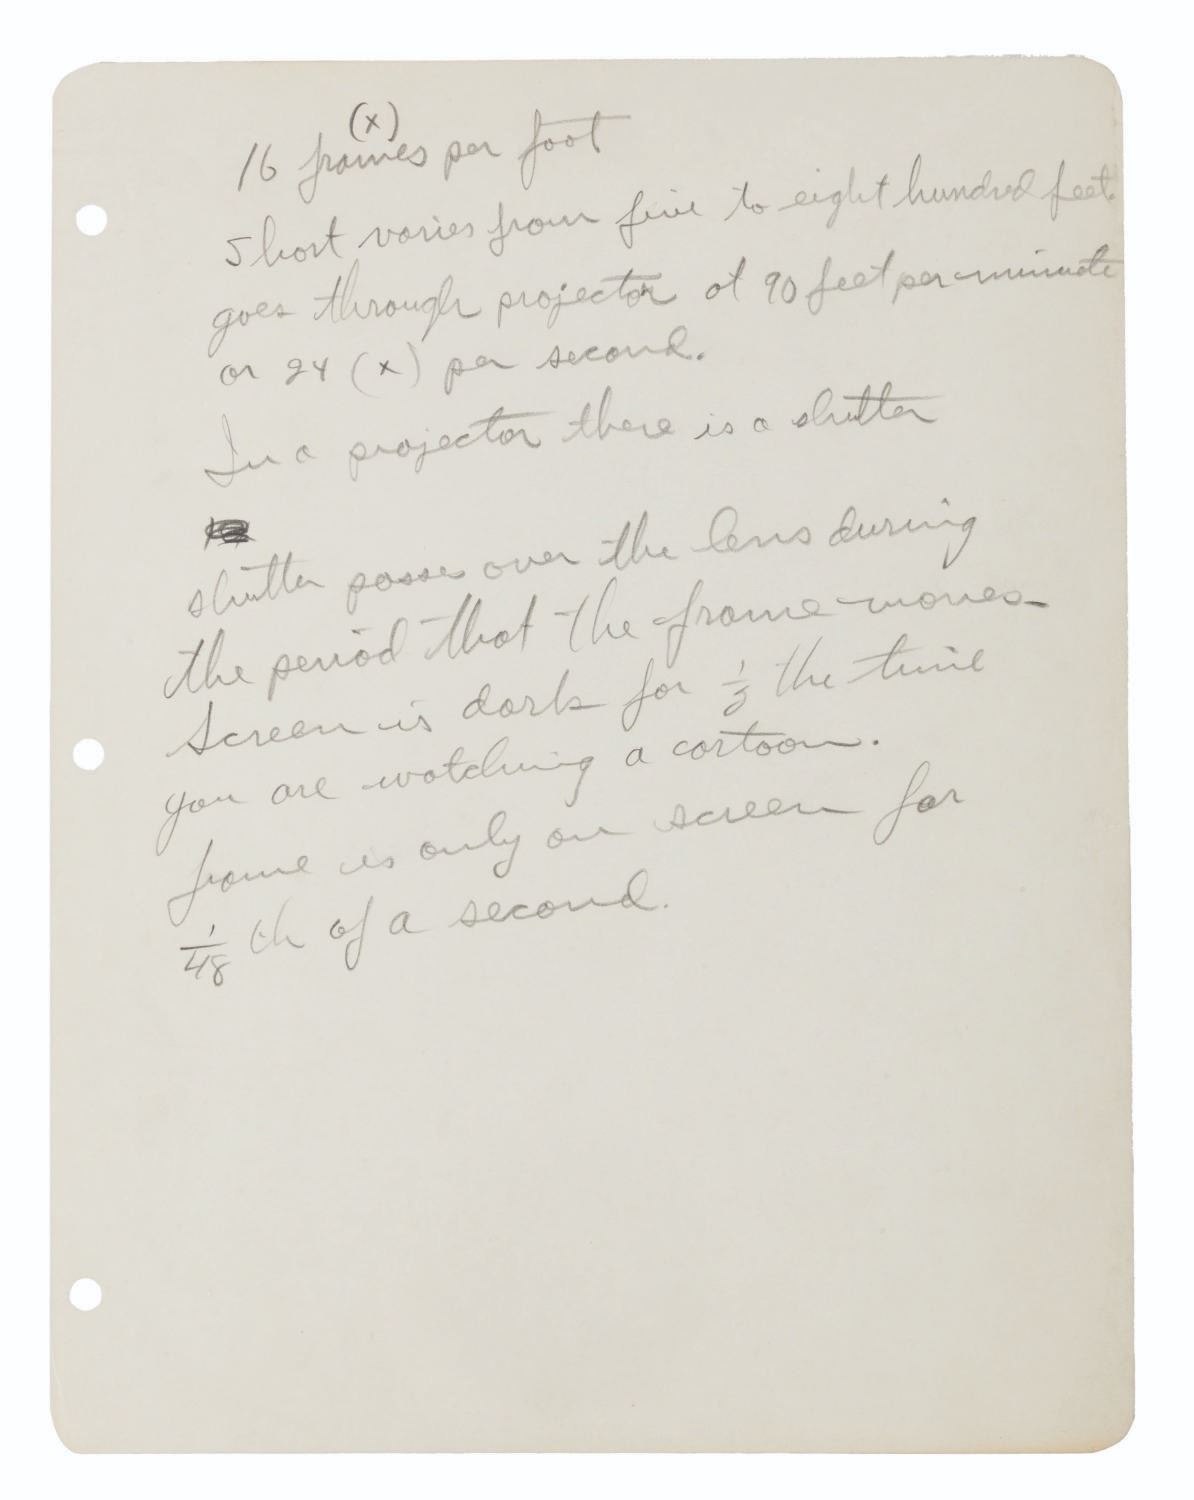 (x)
16 frames per foot
Short varies from five to eight hundred feet.
goes through projector at 90 feet per minute
or 24 (x) per second.
In a projector there is a shutter
shutter passes over the lens during
the period that the frame moves
Screen is dark for 1/2 the time
you are watching a cartoon.
frame is only on screen for
1/48 th of a second.